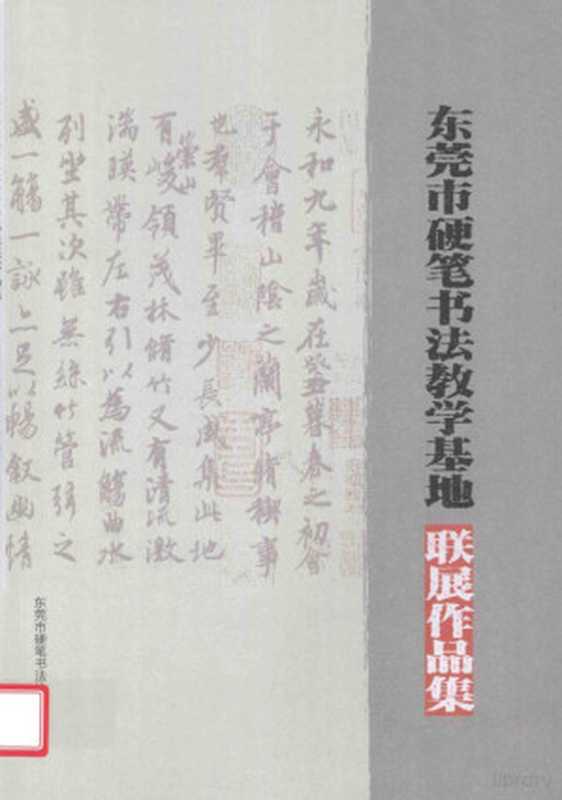 东莞市硬笔书法教学基地
联展作品集
永和九年歲在癸丑暮春之初會
于會稽山陰之蘭亭脩稧事
也羣賢畢至少長咸集此地
有崇山峻領茂林脩竹又有清流激
湍暎帶左右引以為流觴曲水
列坐其次雖無絲竹管弦之
盛一觴一詠亦足以暢叙幽情
东莞市硬笔书法
library